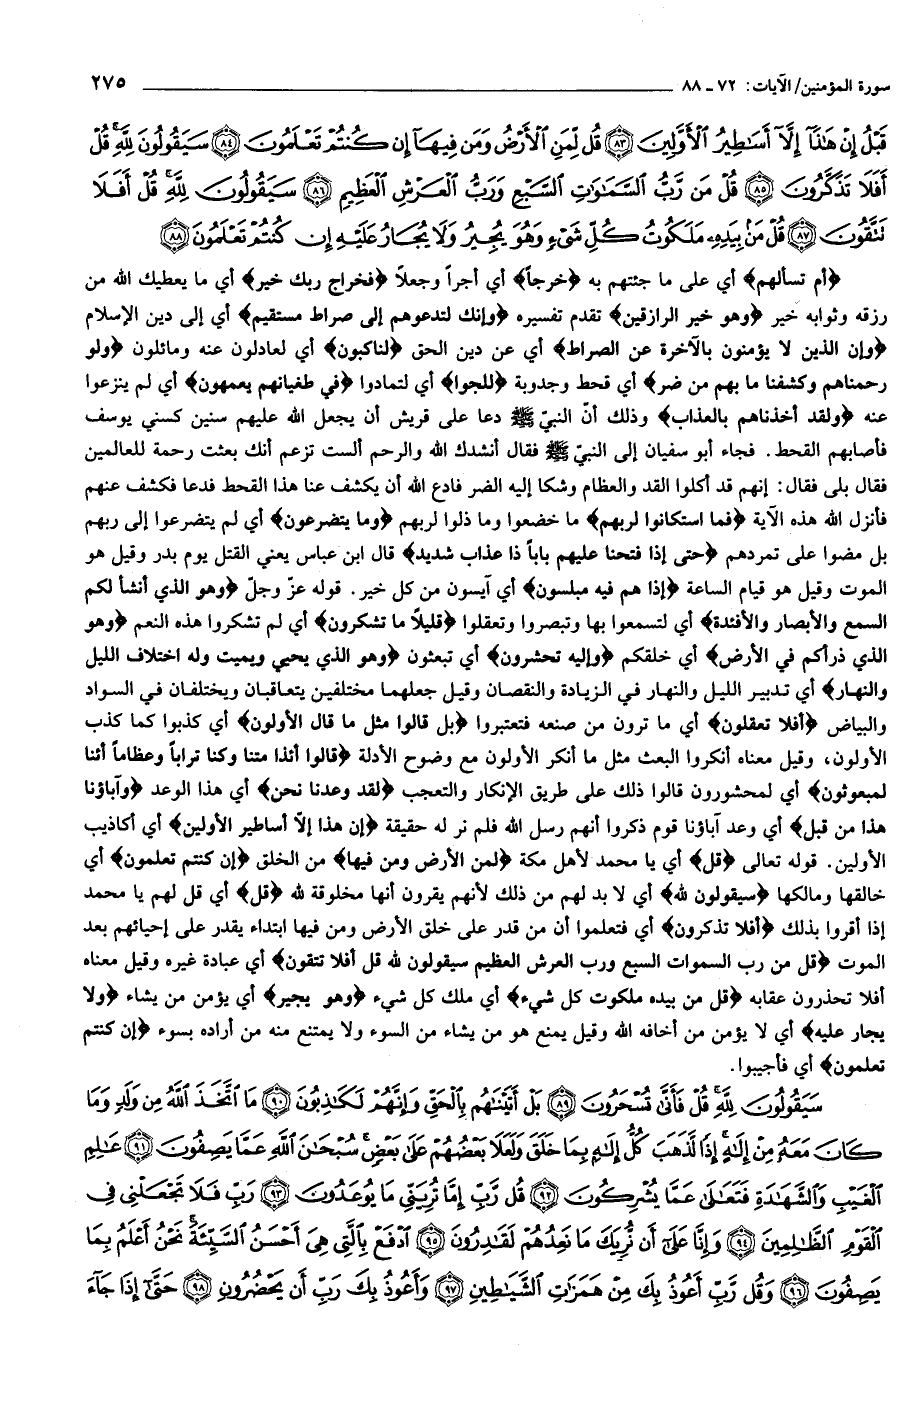 سورة المؤمنين/ الآيات: ٧٢ ـ ٨٨ ٢٧٥
قَبْلُ إِنْ هَٰذَآ إِلَّآ أَسَٰطِيرُ ٱلْأَوَّلِينَ ﴿٨٣﴾ قُل لِّمَنِ ٱلْأَرْضُ وَمَن فِيهَآ إِن كُنتُمْ تَعْلَمُونَ ﴿٨٤﴾ سَيَقُولُونَ لِلَّهِ ۚ قُلْ
أَفَلَا تَذَكَّرُونَ ﴿٨٥﴾ قُلْ مَن رَّبُّ ٱلسَّمَٰوَٰتِ ٱلسَّبْعِ وَرَبُّ ٱلْعَرْشِ ٱلْعَظِيمِ ﴿٨٦﴾ سَيَقُولُونَ لِلَّهِ ۚ قُلْ أَفَلَا
تَتَّقُونَ ﴿٨٧﴾ قُلْ مَنۢ بِيَدِهِۦ مَلَكُوتُ كُلِّ شَىْءٍ وَهُوَ يُجِيرُ وَلَا يُجَارُ عَلَيْهِ إِن كُنتُمْ تَعْلَمُونَ ﴿٨٨﴾
﴿أم تسألهم﴾ أي على ما جئتهم به ﴿خرجاً﴾ أي أجراً وجعلاً ﴿فخراج ربك خير﴾ أي ما يعطيك الله من
رزقه وثوابه خير ﴿وهو خير الرازقين﴾ تقدم تفسيره ﴿وإنك لتدعوهم إلى صراط مستقيم﴾ أي إلى دين الإسلام
﴿وإن الذين لا يؤمنون بالآخرة عن الصراط﴾ أي عن دين الحق ﴿لناكبون﴾ أي لعادلون عنه ومائلون ﴿ولو
رحمناهم وكشفنا ما بهم من ضر﴾ أي قحط وجدوبة ﴿للجوا﴾ أي لتمادوا ﴿في طغيانهم يعمهون﴾ أي لم ينزعوا
عنه ﴿ولقد أخذناهم بالعذاب﴾ وذلك أنّ النبيّ ﷺ دعا على قريش أن يجعل الله عليهم سنين كسني يوسف
فأصابهم القحط. فجاء أبو سفيان إلى النبيّ ﷺ فقال أنشدك الله والرحم ألست تزعم أنك بعثت رحمة للعالمين
فقال بلى فقال: إنهم قد أكلوا القد والعظام وشكا إليه الضر فادع الله أن يكشف عنا هذا القحط فدعا فكشف عنهم
فأنزل الله هذه الآية ﴿فما استكانوا لربهم﴾ ما خضعوا وما ذلوا لربهم ﴿وما يتضرعون﴾ أي لم يتضرعوا إلى ربهم
بل مضوا على تمردهم ﴿حتى إذا فتحنا عليهم باباً ذا عذاب شديد﴾ قال ابن عباس يعني القتل يوم بدر وقيل هو
الموت وقيل هو قيام الساعة ﴿إذا هم فيه مبلسون﴾ أي آيسون من كل خير. قوله عزّ وجلّ ﴿وهو الذي أنشأ لكم
السمع والأبصار والأفئدة﴾ أي لتسمعوا بها وتبصروا وتعقلوا ﴿قليلاً ما تشكرون﴾ أي لم تشكروا هذه النعم ﴿وهو
الذي ذرأكم في الأرض﴾ أي خلقكم ﴿وإليه تحشرون﴾ أي تبعثون ﴿وهو الذي يحيي ويميت وله اختلاف الليل
والنهار﴾ أي تدبير الليل والنهار في الزيادة والنقصان وقيل جعلهما مختلفين يتعاقبان ويختلفان في السواد
والبياض ﴿أفلا تعقلون﴾ أي ما ترون من صنعه فتعتبروا ﴿بل قالوا مثل ما قال الأولون﴾ أي كذبوا كما كذب
الأولون، وقيل معناه أنكروا البعث مثل ما أنكر الأولون مع وضوح الأدلة ﴿قالوا أئذا متنا وكنا تراباً وعظاماً أئنا
لمبعوثون﴾ أي لمحشورون قالوا ذلك على طريق الإنكار والتعجب ﴿لقد وعدنا نحن﴾ أي هذا الوعد ﴿وآباؤنا
هذا من قبل﴾ أي وعد آباؤنا قوم ذكروا أنهم رسل الله فلم نر له حقيقة ﴿إن هذا إلاّ أساطير الأولين﴾ أي أكاذيب
الأولين. قوله تعالى ﴿قل﴾ أي يا محمد لأهل مكة ﴿لمن الأرض ومن فيها﴾ من الخلق ﴿إن كنتم تعلمون﴾ أي
خالقها ومالكها ﴿سيقولون لله﴾ أي لا بد لهم من ذلك لأنهم يقرون أنها مخلوقة لله ﴿قل﴾ أي قل لهم يا محمد
إذا أقروا بذلك ﴿أفلا تذكرون﴾ أي فتعلموا أن من قدر على خلق الأرض ومن فيها ابتداء يقدر على إحيائهم بعد
الموت ﴿قل من رب السموات السبع ورب العرش العظيم سيقولون لله قل أفلا تتقون﴾ أي عبادة غيره وقيل معناه
أفلا تحذرون عقابه ﴿قل من بيده ملكوت كل شيء﴾ أي ملك كل شيء ﴿وهو يجير﴾ أي يؤمن من يشاء ﴿ولا
يجار عليه﴾ أي لا يؤمن من أخافه الله وقيل يمنع هو من يشاء من السوء ولا يمتنع منه من أراده بسوء ﴿إن كنتم
تعلمون﴾ أي فأجيبوا.
سَيَقُولُونَ لِلَّهِ ۚ قُلْ فَأَنَّىٰ تُسْحَرُونَ ﴿٨٩﴾ بَلْ أَتَيْنَٰهُم بِٱلْحَقِّ وَإِنَّهُمْ لَكَٰذِبُونَ ﴿٩٠﴾ مَا ٱتَّخَذَ ٱللَّهُ مِن وَلَدٍ وَمَا
كَانَ مَعَهُۥ مِنْ إِلَٰهٍ ۚ إِذًا لَّذَهَبَ كُلُّ إِلَٰهٍۭ بِمَا خَلَقَ وَلَعَلَا بَعْضُهُمْ عَلَىٰ بَعْضٍ ۚ سُبْحَٰنَ ٱللَّهِ عَمَّا يَصِفُونَ ﴿٩١﴾ عَٰلِمِ
ٱلْغَيْبِ وَٱلشَّهَٰدَةِ فَتَعَٰلَىٰ عَمَّا يُشْرِكُونَ ﴿٩٢﴾ قُل رَّبِّ إِمَّا تُرِيَنِّى مَا يُوعَدُونَ ﴿٩٣﴾ رَبِّ فَلَا تَجْعَلْنِى فِى
ٱلْقَوْمِ ٱلظَّٰلِمِينَ ﴿٩٤﴾ وَإِنَّا عَلَىٰٓ أَن نُّرِيَكَ مَا نَعِدُهُمْ لَقَٰدِرُونَ ﴿٩٥﴾ ٱدْفَعْ بِٱلَّتِى هِىَ أَحْسَنُ ٱلسَّيِّئَةَ ۚ نَحْنُ أَعْلَمُ بِمَا
يَصِفُونَ ﴿٩٦﴾ وَقُل رَّبِّ أَعُوذُ بِكَ مِنْ هَمَزَٰتِ ٱلشَّيَٰطِينِ ﴿٩٧﴾ وَأَعُوذُ بِكَ رَبِّ أَن يَحْضُرُونِ ﴿٩٨﴾ حَتَّىٰٓ إِذَا جَآءَ